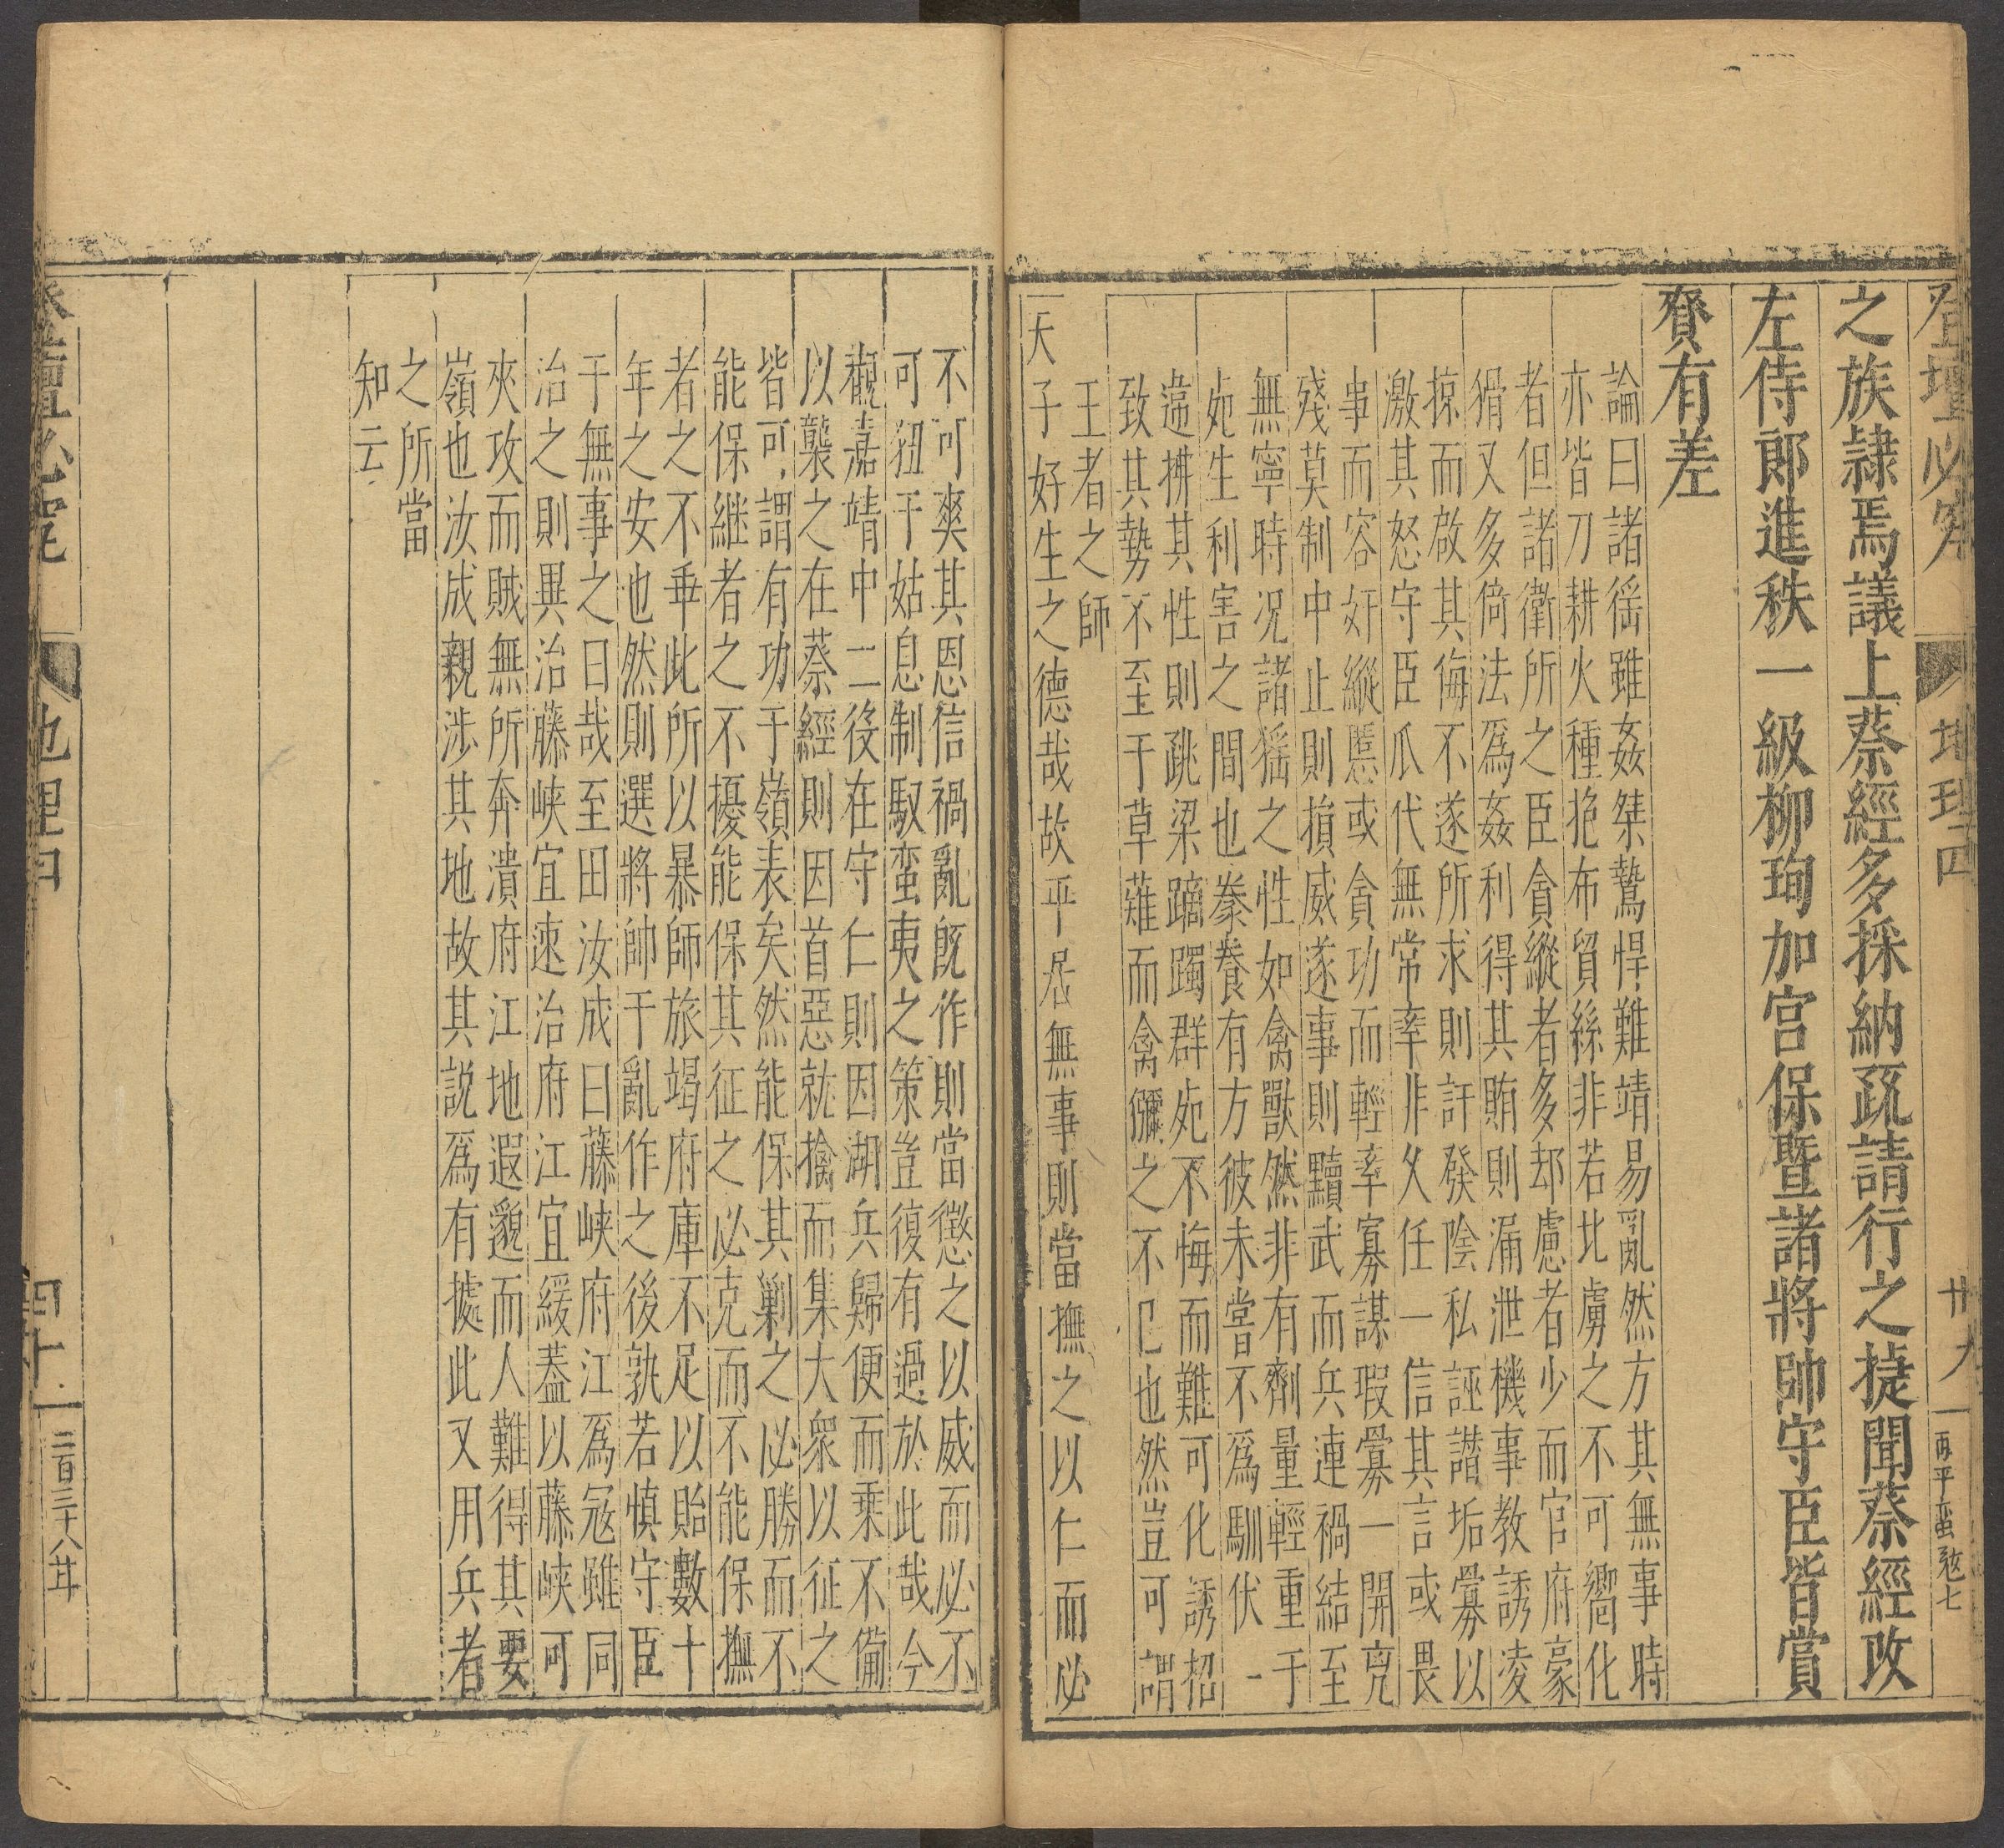 登壇必究 地理四 卅九 再平蛮 弦七
之族隷焉議上蔡經多採納疏請行之㨗聞蔡經改
左侍郎進秩一級柳珣加宫保暨諸將帥守臣皆賞
賚有差
論曰諸徭雖姦桀鷙悍難靖易亂然方其無事時
亦皆刀耕火種抱布貿絲非若北虜之不可嚮化
者但諸衛所之臣貪縱者多却慮者少而官府豪
猾又多倚法爲姦利得其賄則漏泄機事教誘凌
掠而啟其侮不遂所求則訐發陰私誣譛垢釁以
激其怒守臣瓜代無常率非乆任一信其言或畏
事而容奸縱慝或貪功而輕率寡謀瑕釁一開兇
殘莫制中止則損威遂事則黷武而兵連禍結至
無寧時况諸猺之性如禽獸然非有劑量輕重于
死生利害之間也豢養有方彼未嘗不爲馴伏一
違拂其性則跳梁蹢躅群死不悔而難可化誘招
致其勢不至于草薙而禽獮之不已也然豈可謂
王者之師
天子好生之德哉故平居無事則當撫之以仁而必
不可爽其恩信禍亂旣作則當懲之以威而必不
可狃于姑息制馭蛮夷之策豈復有過於此哉今
觀嘉靖中二役在守仁則因湖兵歸便而乘不備
以襲之在蔡經則因首惡就擒而集大衆以征之
皆可謂有功于嶺表矣然能保其剿之必勝而不
能保継者之不擾能保其征之必克而不能保撫
者之不垂此所以暴師旅竭府庫不足以貽數十
年之安也然則選將帥于亂作之後孰若慎守臣
于無事之日哉至田汝成曰藤峡府江爲冦雖同
治之則異治藤峡宜速治府江宜緩蓋以藤峡可
夾攻而賊無所奔潰府江地遐邈而人難得其要
嶺也汝成親涉其地故其説爲有據此又用兵者
之所當
知云
登壇必究 地理四 四十 二百三十八廾